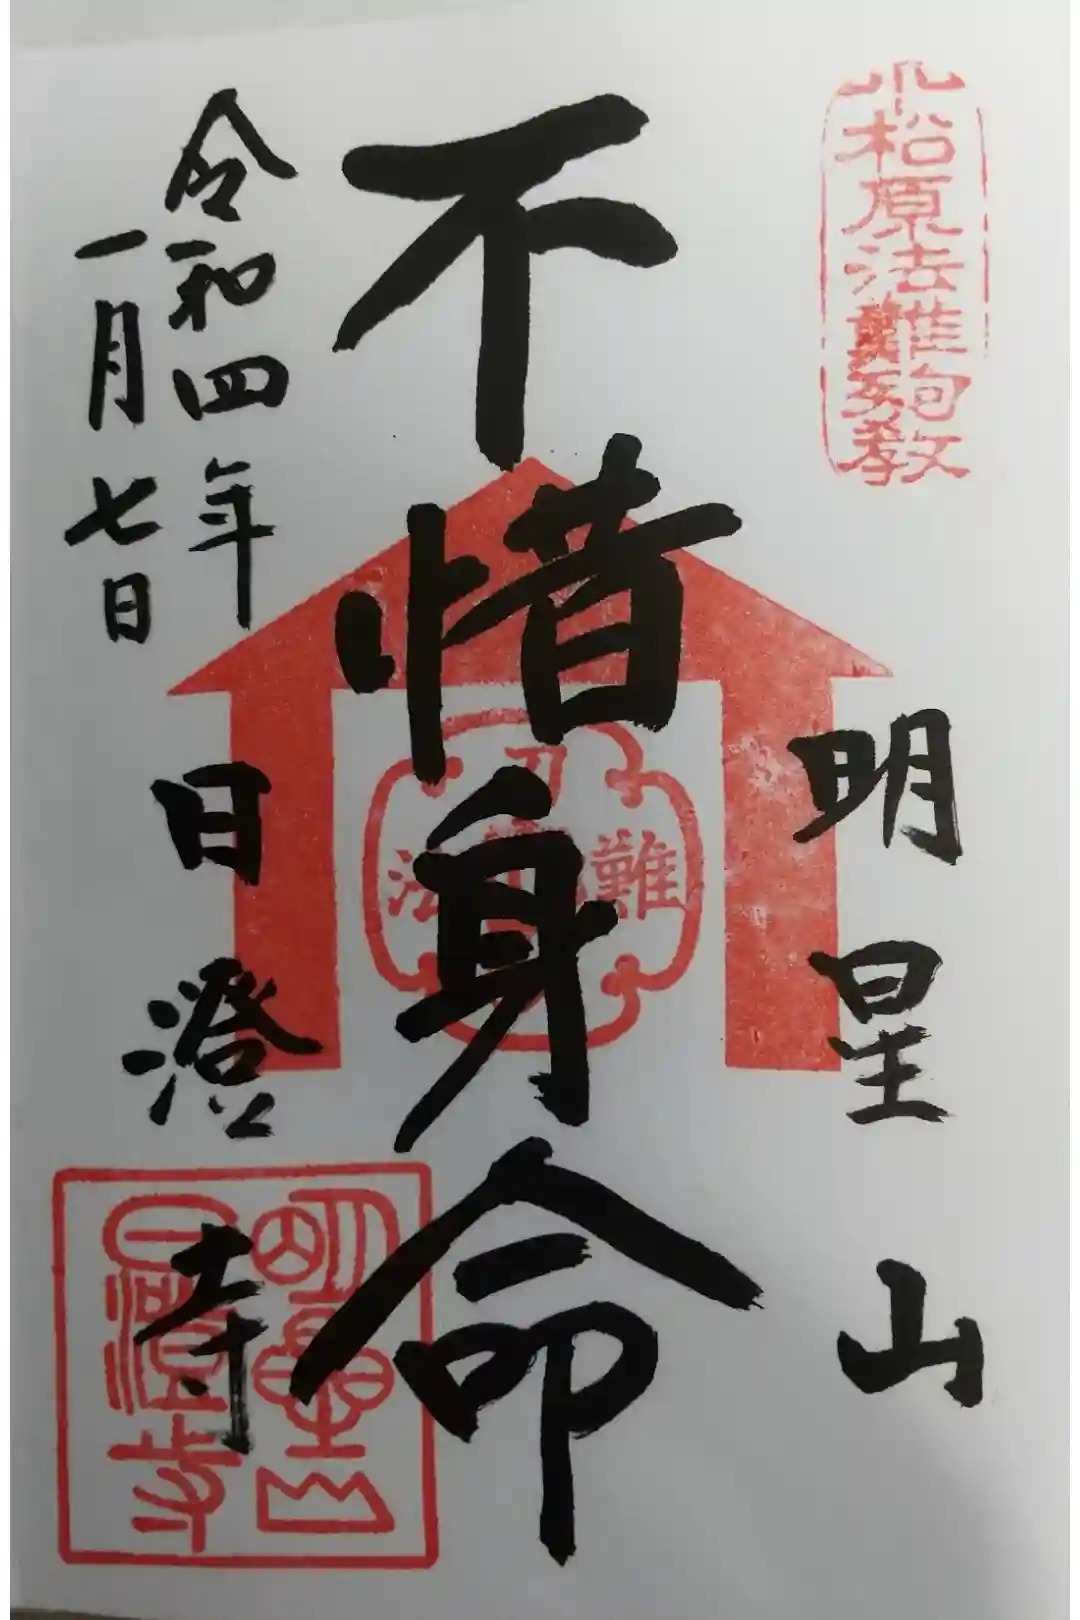 小松原法難殉教
明星山
不惜身命
刀
難
法
令和四年
一月七日
日澄寺
明星山
日澄寺